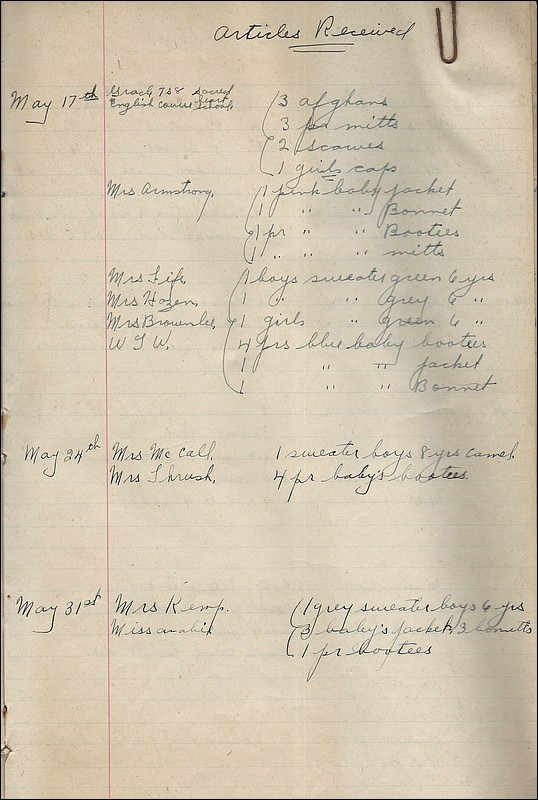 Articles Received
May 17th Grade 7&8 Sacred Heart
English course School, 3 afghans
3 pr mitts
2 scarves
1 girls caps
Mrs Armstrong, 1 pink baby jacket
1 " " Bonnet
1 pr " " Bootees
1 " " " mitts
Mrs Fife 1 boys sweater green 6 yrs
Mrs Hazen, 1 " " grey 6 "
Mrs Brownlee, 1 girls " green 6 "
4 prs blue baby bootees
1 " " jacket
1 " " Bonnet
May 24th Mrs McCall, 1 sweater boys 8 yrs camel.
Mrs Thrush, 4 pr baby's bootees.
May 31st Mrs Kemp. 1 grey sweater boys 6 yrs
Miss 3 baby's jackets 3 bonnetts
1 pr bootees